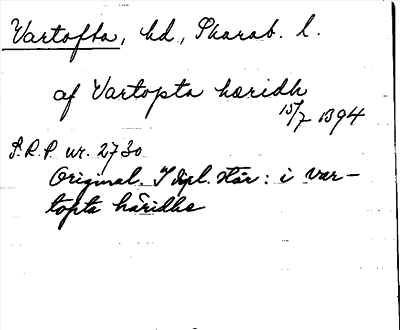 Vartofta, hd, Skarab. l.
af Vartopta hæridh
15/7 1394
S.R.P. nr. 2730
Original. I dipl. står: i var-
topta häridhe